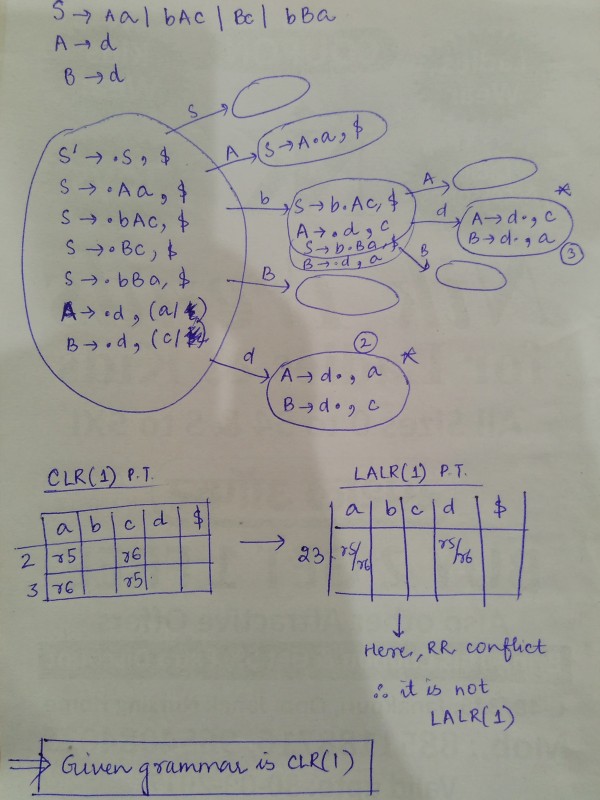 S → Aa | bAc | Bc | bBa
A → d
B → d
S' → .S, $
S → .Aa, $
S → .bAc, $
S → .Bc, $
S → .bBa, $
A → .d, (a/
B → .d, (c/
S
A
S → A.a, $
b
S → b.Ac, $
A → .d, c
S → b.Ba, $
B → .d, a
A
d
A → d., c
B → d., a
*
3
B
B
d
2
*
A → d., a
B → d., c
CLR(1) P.T.
a b c d $
2 r5 r6
3 r6 r5
→
LALR(1) P.T.
a b c d $
23 r5/r6 r5/r6
↓
Here, RR conflict
∴ it is not
LALR(1)
⇒ Given grammar is CLR(1)